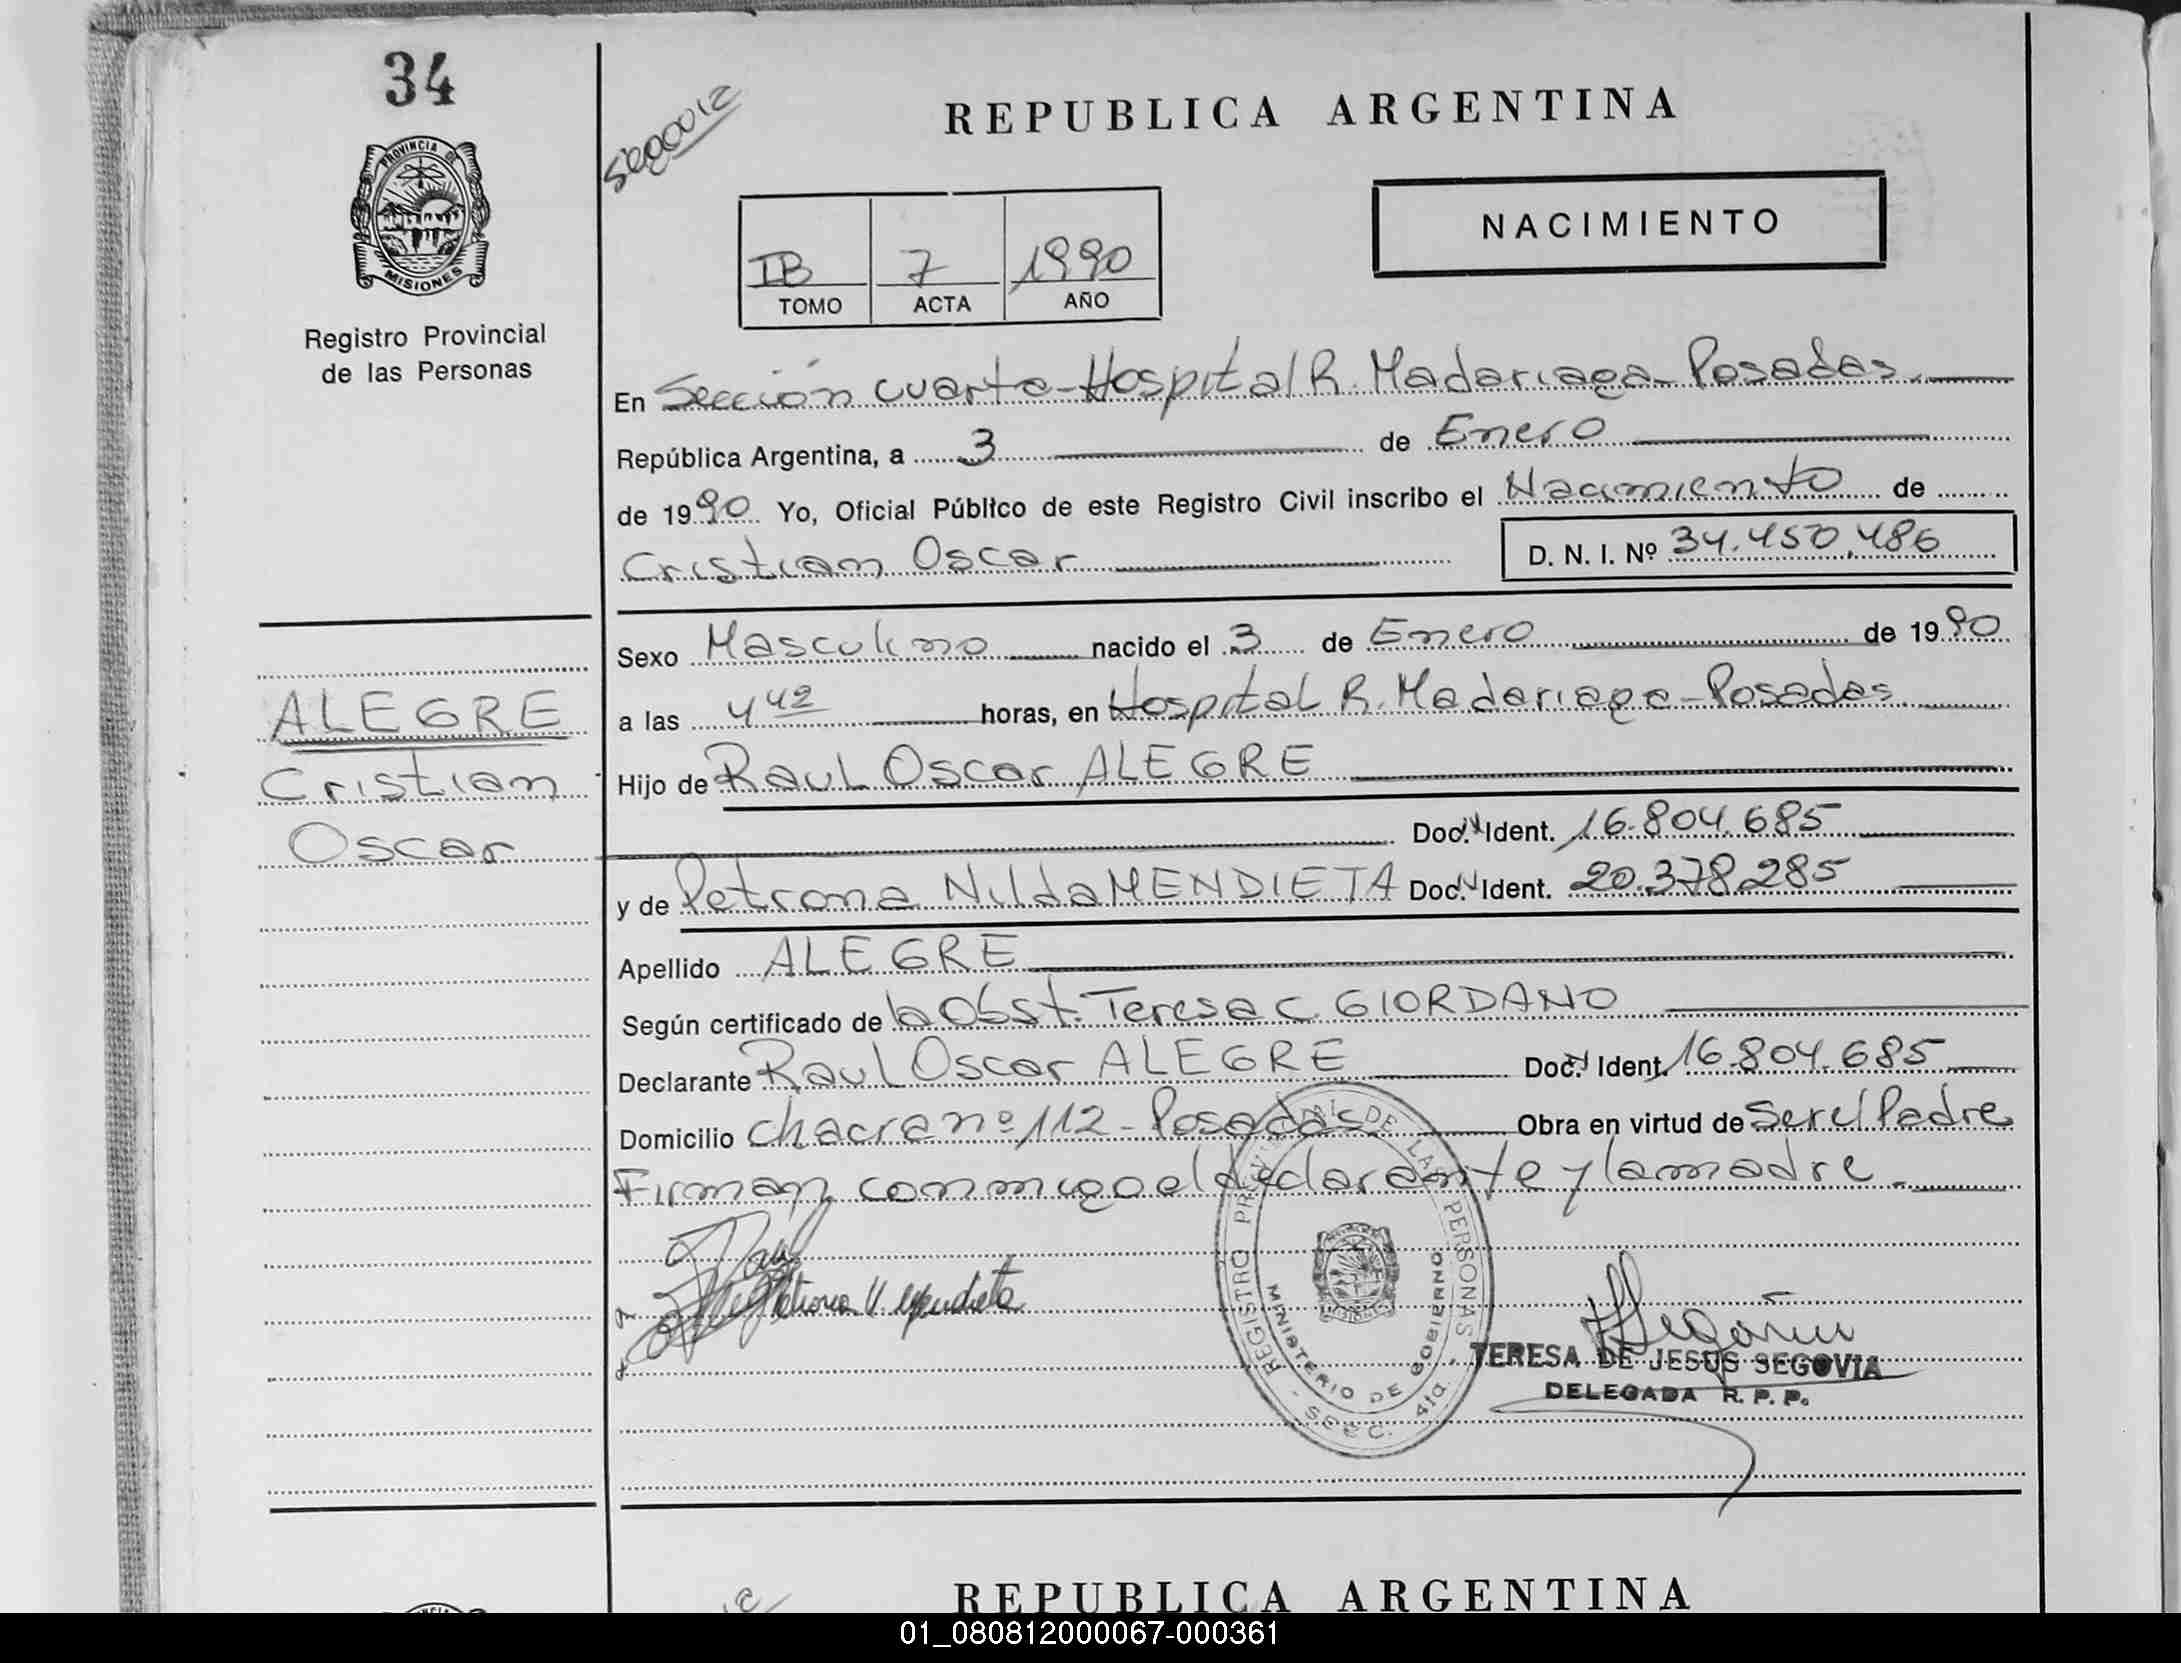 34
PROVINCIA DE
MISIONES
Registro Provincial
de las Personas
REPUBLICA ARGENTINA
NACIMIENTO
IB 7 1990
TOMO ACTA AÑO
En Sección cuarta-Hospital R. Madariaga-Posadas.
República Argentina, a 3 de Enero
de 1990 Yo, Oficial Público de este Registro Civil inscribo el Nacimiento de
Cristian Oscar D. N. I. Nº 34.450.486
Sexo Masculino nacido el 3 de Enero de 1990
a las 4 42 horas, en Hospital R. Madariaga-Posadas
Hijo de Raul Oscar ALEGRE
Doc. Ident. 16.804.685
y de Petrona Nilda MENDIETA Doc. Ident. 20.378.285
Apellido ALEGRE
Según certificado de la Obst. Teresa C. GIORDANO
Declarante Raul Oscar ALEGRE Doc. Ident. 16.804.685
Domicilio chacra nº 112 - Posadas Obra en virtud de Ser el Padre
Firman conmigo el declarante y la madre.
ALEGRE
Cristian
Oscar
REGISTRO PROVINCIAL DE LAS PERSONAS
MINISTERIO DE GOBIERNO
SECC. 4ta.
TERESA DE JESUS SEGOVIA
DELEGADA R. P. P.
REPUBLICA ARGENTINA
01_080812000067-000361